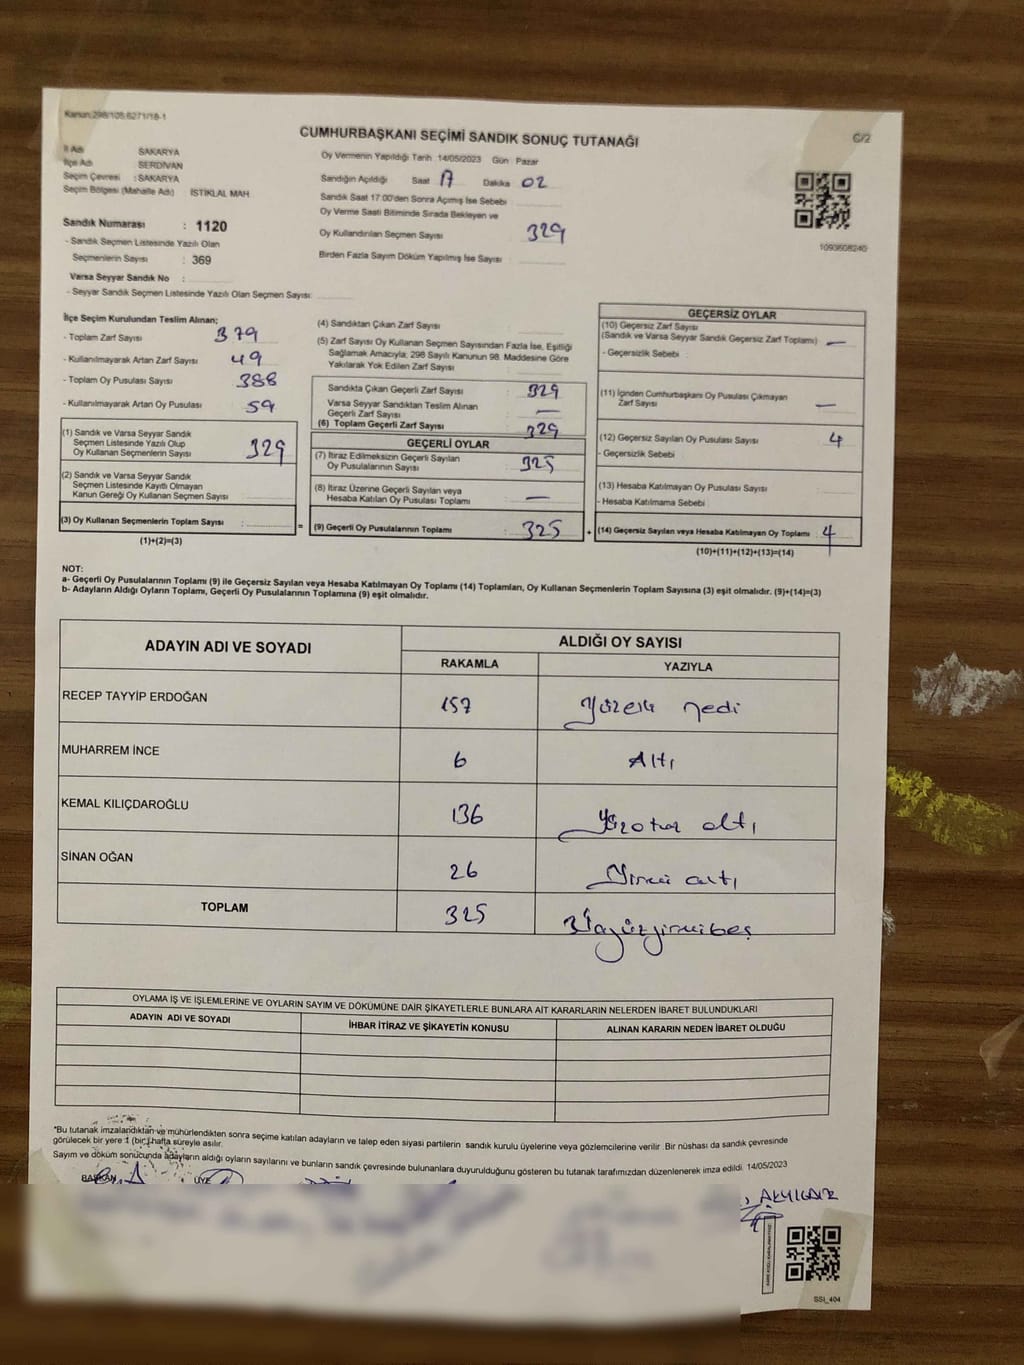 Kanun:298/105;6271/18-1
CUMHURBAŞKANI SEÇİMİ SANDIK SONUÇ TUTANAĞI
C/2
İl Adı SAKARYA
İlçe Adı SERDİVAN
Seçim Çevresi : SAKARYA
Seçim Bölgesi (Mahalle Adı) : İSTİKLAL MAH.
Sandık Numarası : 1120
- Sandık Seçmen Listesinde Yazılı Olan
Seçmenlerin Sayısı : 369
Varsa Seyyar Sandık No :
- Seyyar Sandık Seçmen Listesinde Yazılı Olan Seçmen Sayısı:
Oy Vermenin Yapıldığı Tarih 14/05/2023 Gün Pazar
Sandığın Açıldığı Saat 17 Dakika 02
Sandık Saat 17:00'den Sonra Açımış İse Sebebi
Oy Verme Saati Bitiminde Sırada Bekleyen ve
Oy Kullandırılan Seçmen Sayısı 329
Birden Fazla Sayım Döküm Yapılmış İse Sayısı :
1093608240
İlçe Seçim Kurulundan Teslim Alınan;
- Toplam Zarf Sayısı : 379
- Kullanılmayarak Artan Zarf Sayısı : 49
- Toplam Oy Pusulası Sayısı : 388
- Kullanılmayarak Artan Oy Pusulası : 59
(1) Sandık ve Varsa Seyyar Sandık
Seçmen Listesinde Yazılı Olup
Oy Kullanan Seçmenlerin Sayısı : 329
(2) Sandık ve Varsa Seyyar Sandık
Seçmen Listesinde Kayıtlı Olmayan
Kanun Gereği Oy Kullanan Seçmen Sayısı :
(3) Oy Kullanan Seçmenlerin Toplam Sayısı : =
(1)+(2)=(3)
(4) Sandıktan Çıkan Zarf Sayısı :
(5) Zarf Sayısı Oy Kullanan Seçmen Sayısından Fazla İse, Eşitliği
Sağlamak Amacıyla; 298 Sayılı Kanunun 98. Maddesine Göre
Yakılarak Yok Edilen Zarf Sayısı :
Sandıkta Çıkan Geçerli Zarf Sayısı : 329
Varsa Seyyar Sandıktan Teslim Alınan
Geçerli Zarf Sayısı : —
(6) Toplam Geçerli Zarf Sayısı : 329
GEÇERLİ OYLAR
(7) İtiraz Edilmeksizin Geçerli Sayılan
Oy Pusulalarının Sayısı : 325
(8) İtiraz Üzerine Geçerli Sayılan veya
Hesaba Katılan Oy Pusulası Toplamı : —
(9) Geçerli Oy Pusulalarının Toplamı : 325 +
GEÇERSİZ OYLAR
(10) Geçersiz Zarf Sayısı
(Sandık ve Varsa Seyyar Sandık Geçersiz Zarf Toplamı) : —
- Geçersizlik Sebebi :
(11) İçinden Cumhurbaşkanı Oy Pusulası Çıkmayan
Zarf Sayısı : —
(12) Geçersiz Sayılan Oy Pusulası Sayısı : 4
- Geçersizlik Sebebi :
(13) Hesaba Katılmayan Oy Pusulası Sayısı :
- Hesaba Katılmama Sebebi :
(14) Geçersiz Sayılan veya Hesaba Katılmayan Oy Toplamı : 4
(10)+(11)+(12)+(13)=(14)
NOT:
a- Geçerli Oy Pusulalarının Toplamı (9) ile Geçersiz Sayılan veya Hesaba Katılmayan Oy Toplamı (14) Toplamları, Oy Kullanan Seçmenlerin Toplam Sayısına (3) eşit olmalıdır. (9)+(14)=(3)
b- Adayların Aldığı Oyların Toplamı, Geçerli Oy Pusulalarının Toplamına (9) eşit olmalıdır.
ADAYIN ADI VE SOYADI
ALDIĞI OY SAYISI
RAKAMLA YAZIYLA
RECEP TAYYİP ERDOĞAN 157 Yüzelli yedi
MUHARREM İNCE 6 Altı
KEMAL KILIÇDAROĞLU 136 Yüzotuz altı
SİNAN OĞAN 26 Yirmi altı
TOPLAM 325 Üçyüzyirmibeş
OYLAMA İŞ VE İŞLEMLERİNE VE OYLARIN SAYIM VE DÖKÜMÜNE DAİR ŞİKAYETLERLE BUNLARA AİT KARARLARIN NELERDEN İBARET BULUNDUKLARI
ADAYIN ADI VE SOYADI İHBAR İTİRAZ VE ŞİKAYETİN KONUSU ALINAN KARARIN NEDEN İBARET OLDUĞU
*Bu tutanak imzalandıktan ve mühürlendikten sonra seçime katılan adayların ve talep eden siyasi partilerin sandık kurulu üyelerine veya gözlemcilerine verilir. Bir nüshası da sandık çevresinde
görülecek bir yere 1 (bir) hafta süreyle asılır.
Sayım ve döküm sonucunda adayların aldığı oyların sayılarını ve bunların sandık çevresinde bulunanlara duyurulduğunu gösteren bu tutanak tarafımızdan düzenlenerek imza edildi. 14/05/2023
BAŞKAN ÜYE
SSI_404